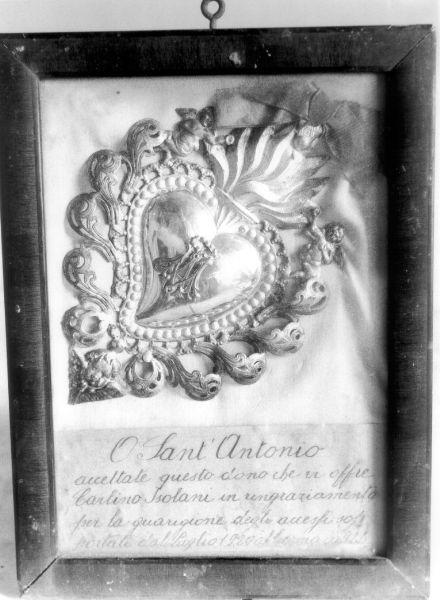 O Sant' Antonio
accettate questo dono che vi offre
Carlino Isolani in ringraziamento
per la guarigione degli accessi sof
portati dal Luglio 19